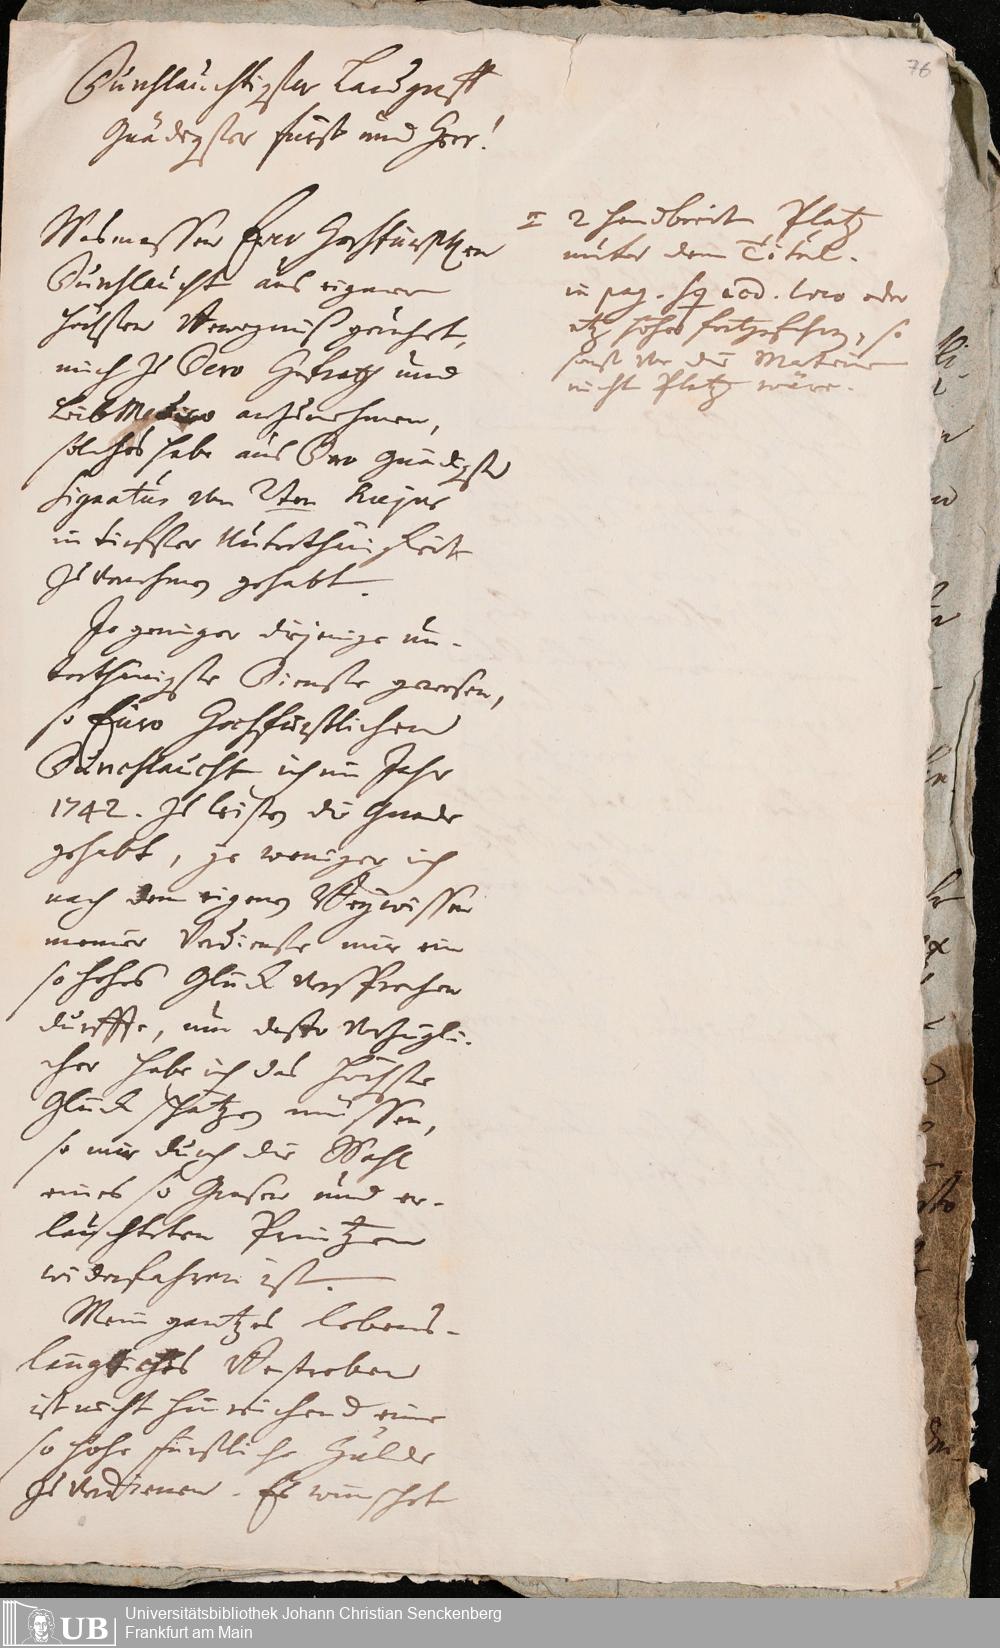 76
Durchlauchtigster Landgraff
Gnädigster Fürst und Herr!
Wasmassen Ewr Hochfürstlichen
Durchlaucht aus eigenem
höchsten Bewegniß geruhet,
mich zu Dero Hofrath und
Leib Medico anzunehmen,
solches habe aus Dero Gnädigster
Signatur vom 2ten hujus
in tiefster Unterthänigkeit
zu vernehmen gehabt.
Je geringer diejenige un-
terthänigste Dienste gewesen,
so Euro Hochfürstlichen
Durchlaucht ich im Jahr
1742. zu leisten die Gnade
gehabt, je weniger ich
nach dem eigenen Bewissen
meiner Verdienste mir ein
so hohes Glück versprechen
durffte, um desto vorzügli-
cher habe ich das höchste
Glück schätzen müssen,
so mir durch die Wahl
eines so Grosen und er-
lauchteten Printzen
widerfahren ist.
Mein gantzes lebens-
längliches Bestreben
ist nicht hinreichend eine
so hohe fürstliche Hulde
zu verdienen. Es wünschet
2 handbreit Platz
unter dem Titul.
in pag. sq eod. loco oder
etz höher so
sonst vor die Materie
nicht Platz wäre.
Universitätsbibliothek Johann Christian Senckenberg
Frankfurt am Main
UB